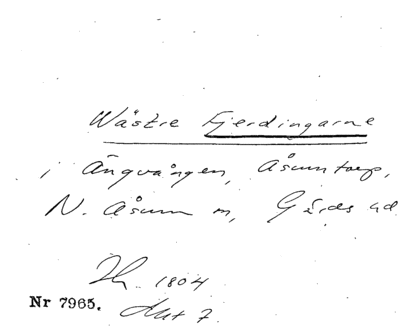 Wästre Fjerdingarne
i Ängvången, Åsumtorp,
N. Åsum sn, Gärds hd
1804
Nr 7965. Akt 7.